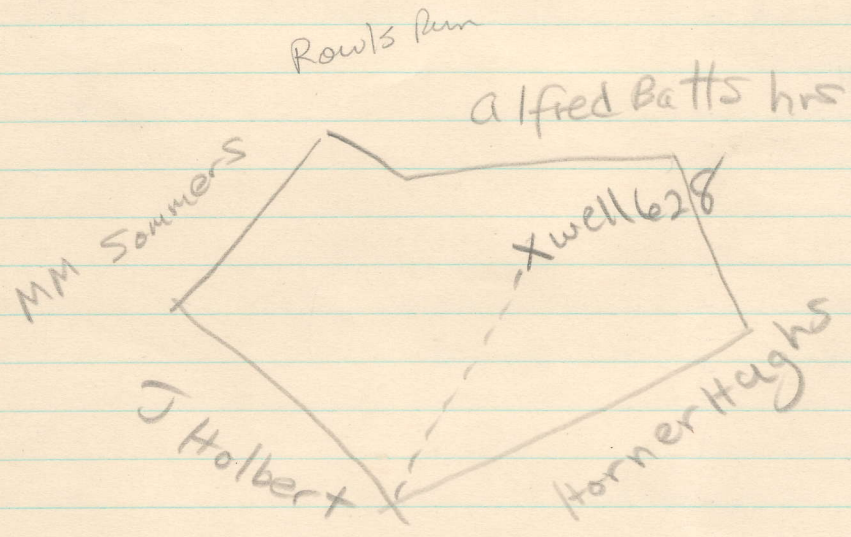 Rowls Run
Alfred Batts hrs
MM Sommers
X well 628
J Holbert
Horner Haghs